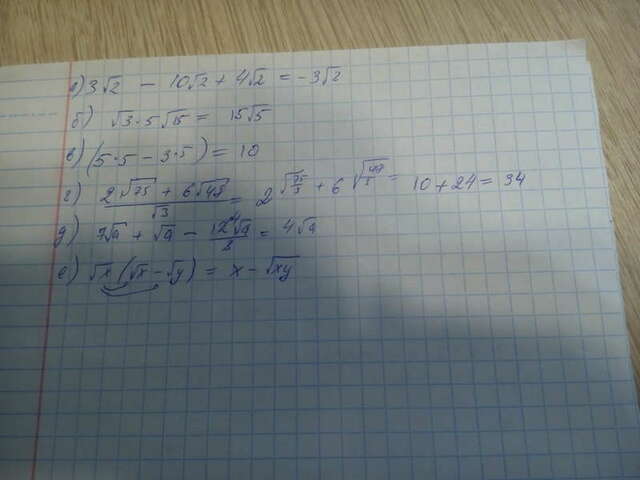 а) 3√2 - 10√2 + 4√2 = -3√2
б) √3 · 5√15 = 15√5
в) (5·5 - 3·5) = 10
г) (2√75 + 6√48)/√3 = 2√(75/3) + 6√(48/3) = 10 + 24 = 34
д) 7√a + √a - 12⁴√a/2 = 4√a
е) √x (√x - √y) = x - √xy